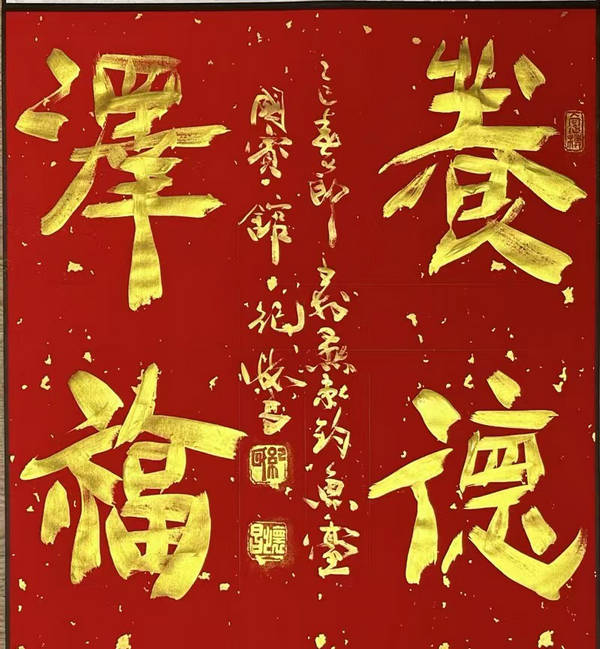 養德
乙巳春節燕京釣魚臺
國賓館
澤福